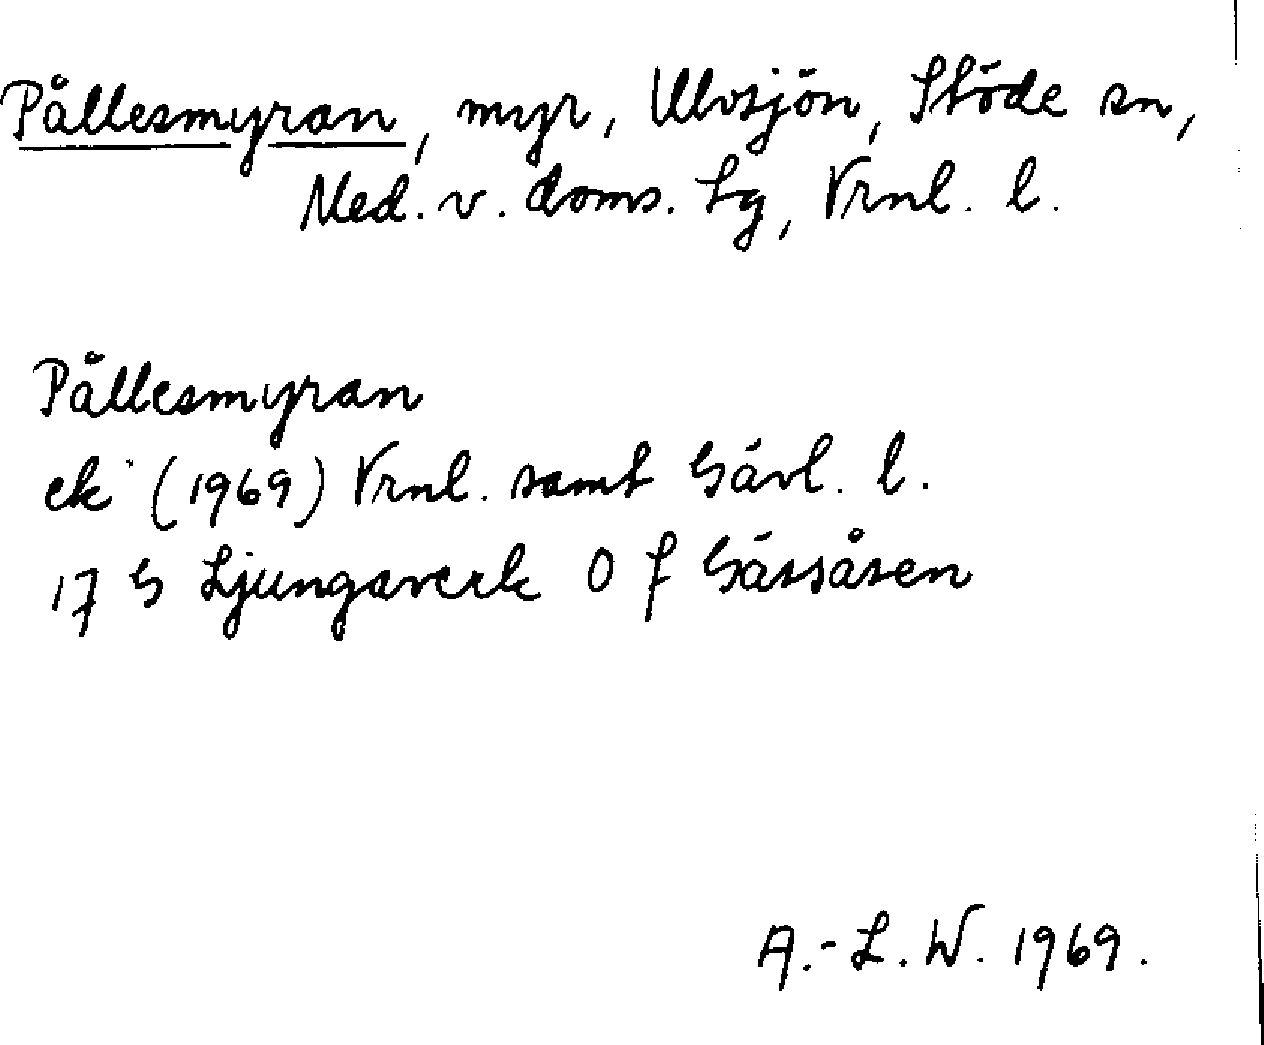 Pållesmyran, myr, Ulvsjön, Stöde sn,
Med. v. doms. lg, Vrnl. l.
Pållesmyran
ek (1969) Vrnl. samt Gävl. l.
17 G Ljungaverk O f Gässåsen
A.-L. W. 1969.